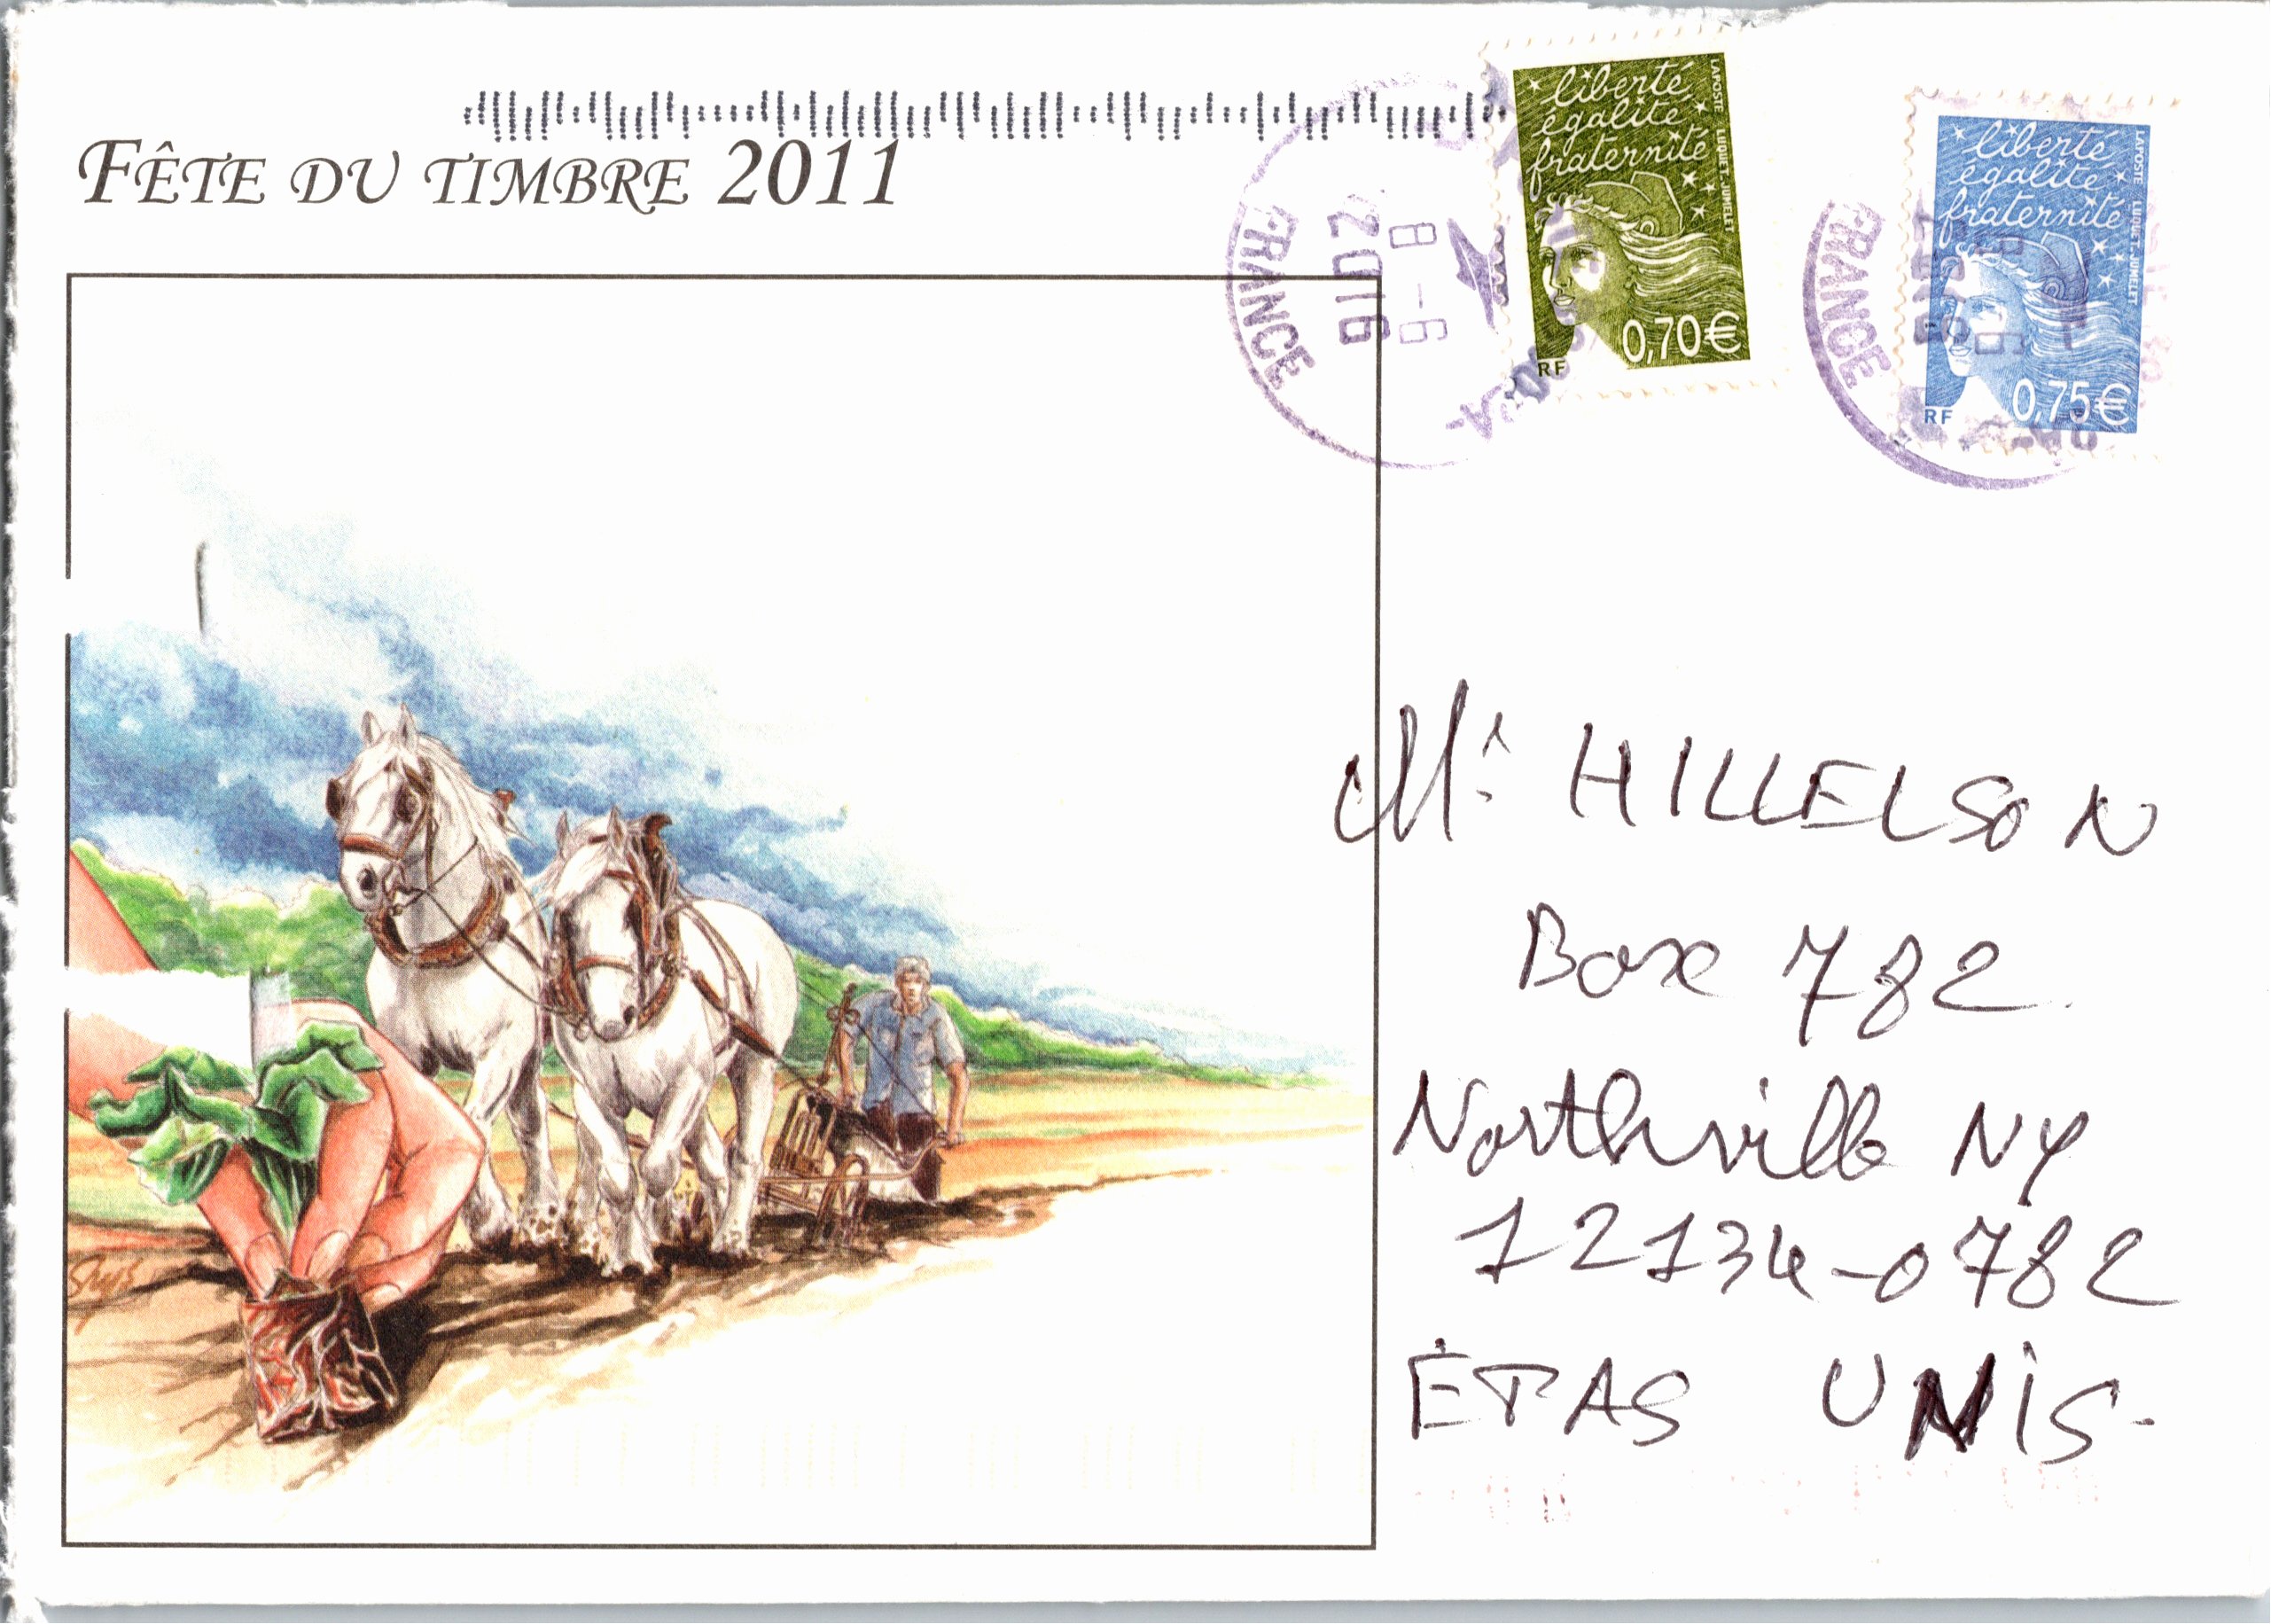 FÊTE DU TIMBRE 2011
liberté
égalité
fraternité
LAPOSTE LUQUET. JUMELET
0,70€
RF
liberté
égalité
fraternité
LAPOSTE LUQUET. JUMELET
0,75€
RF
FRANCE
2016
8 - 6
FRANCE
Mr HILLELSON
Box 782
Northville NY
12134-0782
ÉTAS UNIS-